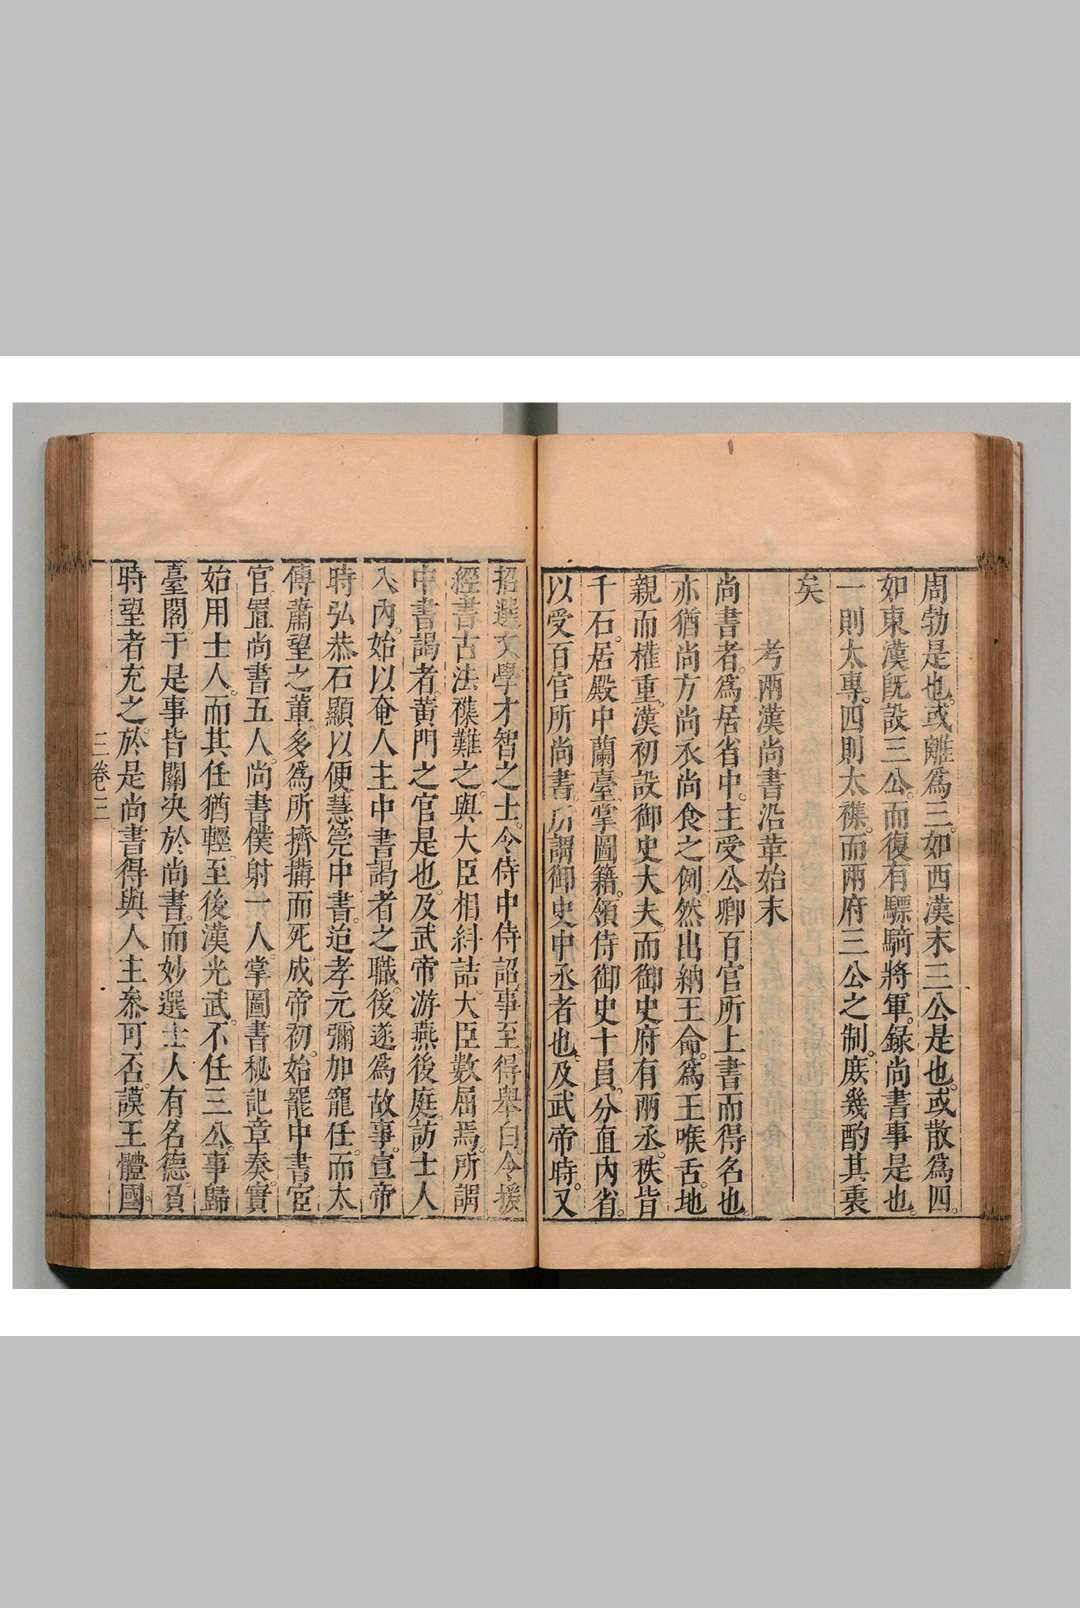 周勃是也。或離爲三。如西漢末三公是也。或散爲四。
如東漢既設三公。而復有驃騎將軍。錄尚書事是也。
一則太專。四則太襍。而兩府三公之制。庻幾酌其衷
矣
考兩漢尚書沿革始末
尚書者。爲居省中。主受公卿百官所上書而得名也
亦猶尚方尚衣尚食之例。然出納王命。爲王喉舌。地
親而權重。漢初設御史大夫。而御史府有兩丞。秩皆
千石。居殿中蘭臺。掌圖籍。領侍御史十員。分直內省。
以受百官所尚書。所謂御史中丞者也。及武帝時。又
招選文學才智之士。令侍中侍詔。事至。得舉白。令援
經書古法襍難之。與大臣相糾詰。大臣數屈焉。所謂
中書謁者。黃門之官是也。及武帝游燕後庭。訪士人
入內。始以奄人主中書謁者之職。後遂爲故事。宣帝
時弘恭石顯以便慧筦中書。迨孝元彌加寵任。而太
傅蕭望之軰。多爲所擠搆而死。成帝初。始罷中書宦
官。置尚書五人。尚書僕射一人。掌圖書秘記章奏。實
始用士人。而其任猶輕。至後漢光武。不任三公。事歸
臺閣。于是事皆關决於尚書。而妙選士人有名德。負
時望者充之。於是尚書得與人主叅可否。謨王體國。
卷三